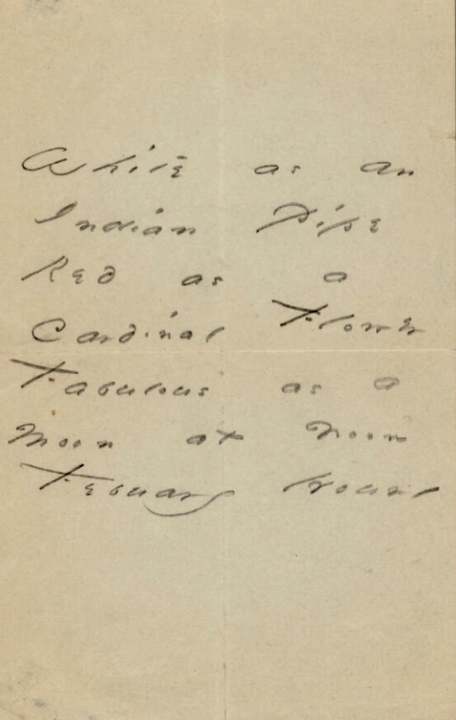 White as an
Indian Pipe
Red as a
Cardinal Flower
Fabulous as a
Moon at Noon
Febuary Hour